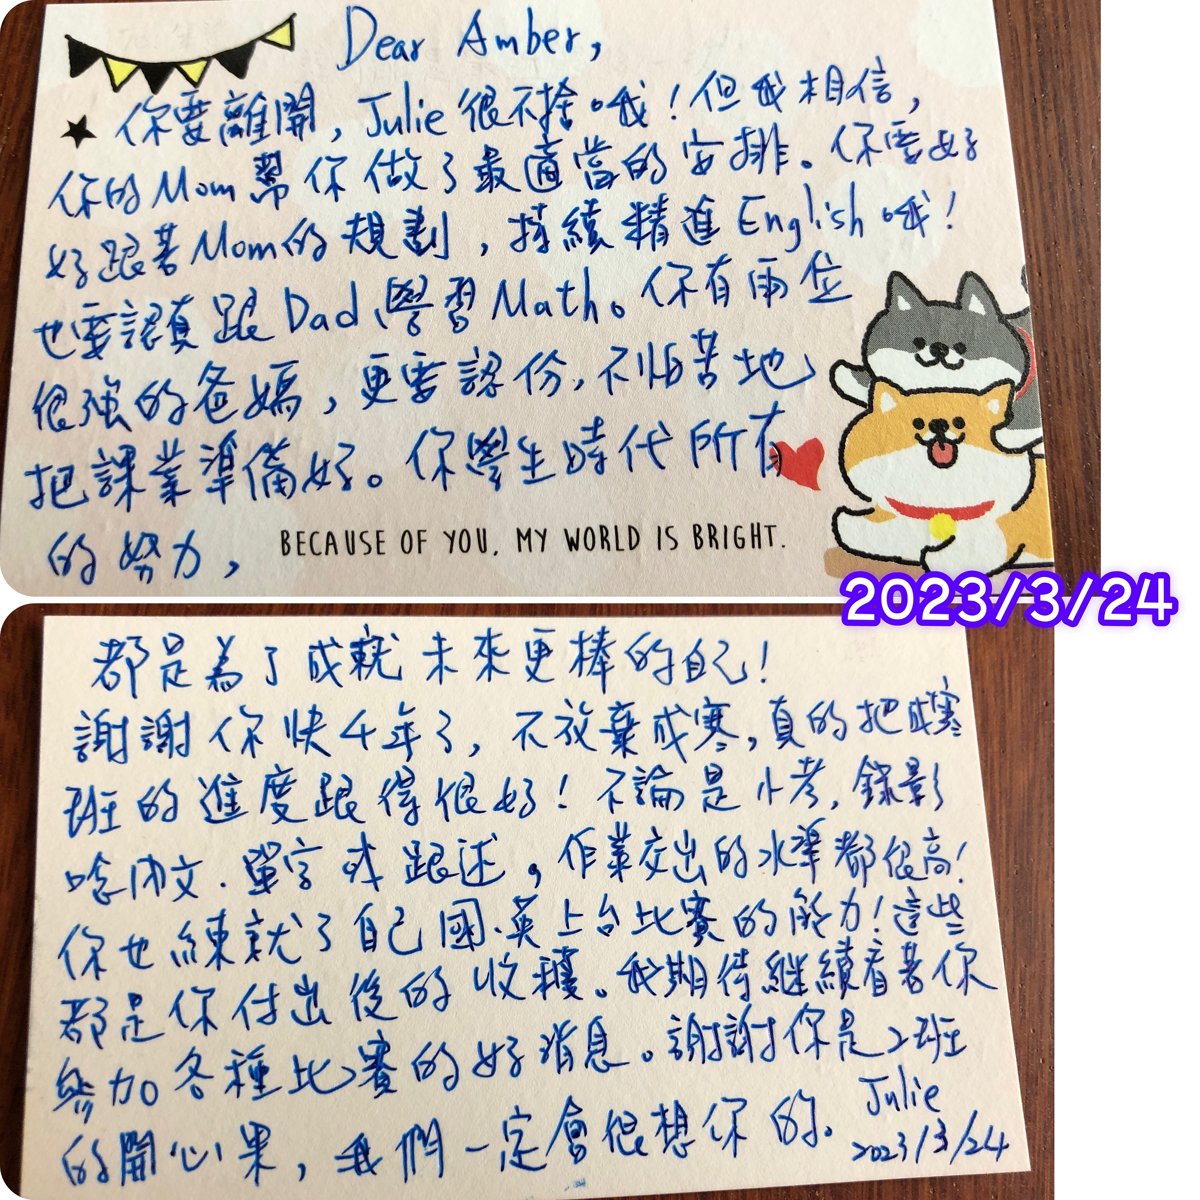 Dear Amber,
你要離開，Julie很不捨哦！但我相信，
你的Mom幫你做了最適當的安排。你要好
好跟著Mom的規劃，持續精進English哦！
也要認真跟Dad學習Math。你有兩位
很強的爸媽，更要認份，不怕苦地
把課業準備好。你學生時代所有
的努力，
BECAUSE OF YOU, MY WORLD IS BRIGHT.
2023/3/24
都是為了成就未來更棒的自己！
謝謝你快4年了，不放棄成寒，真的把成寒
班的進度跟得很好！不論是小考，錄影
唸內文．單字或跟述，作業交出的水準都很高！
你也練就了自己國、英上台比賽的能力！這些
都是你付出後的收穫。我期待繼續看著你
參加各種比賽的好消息。謝謝你是2班
的開心果，我們一定會很想你的。
Julie
2023/3/24